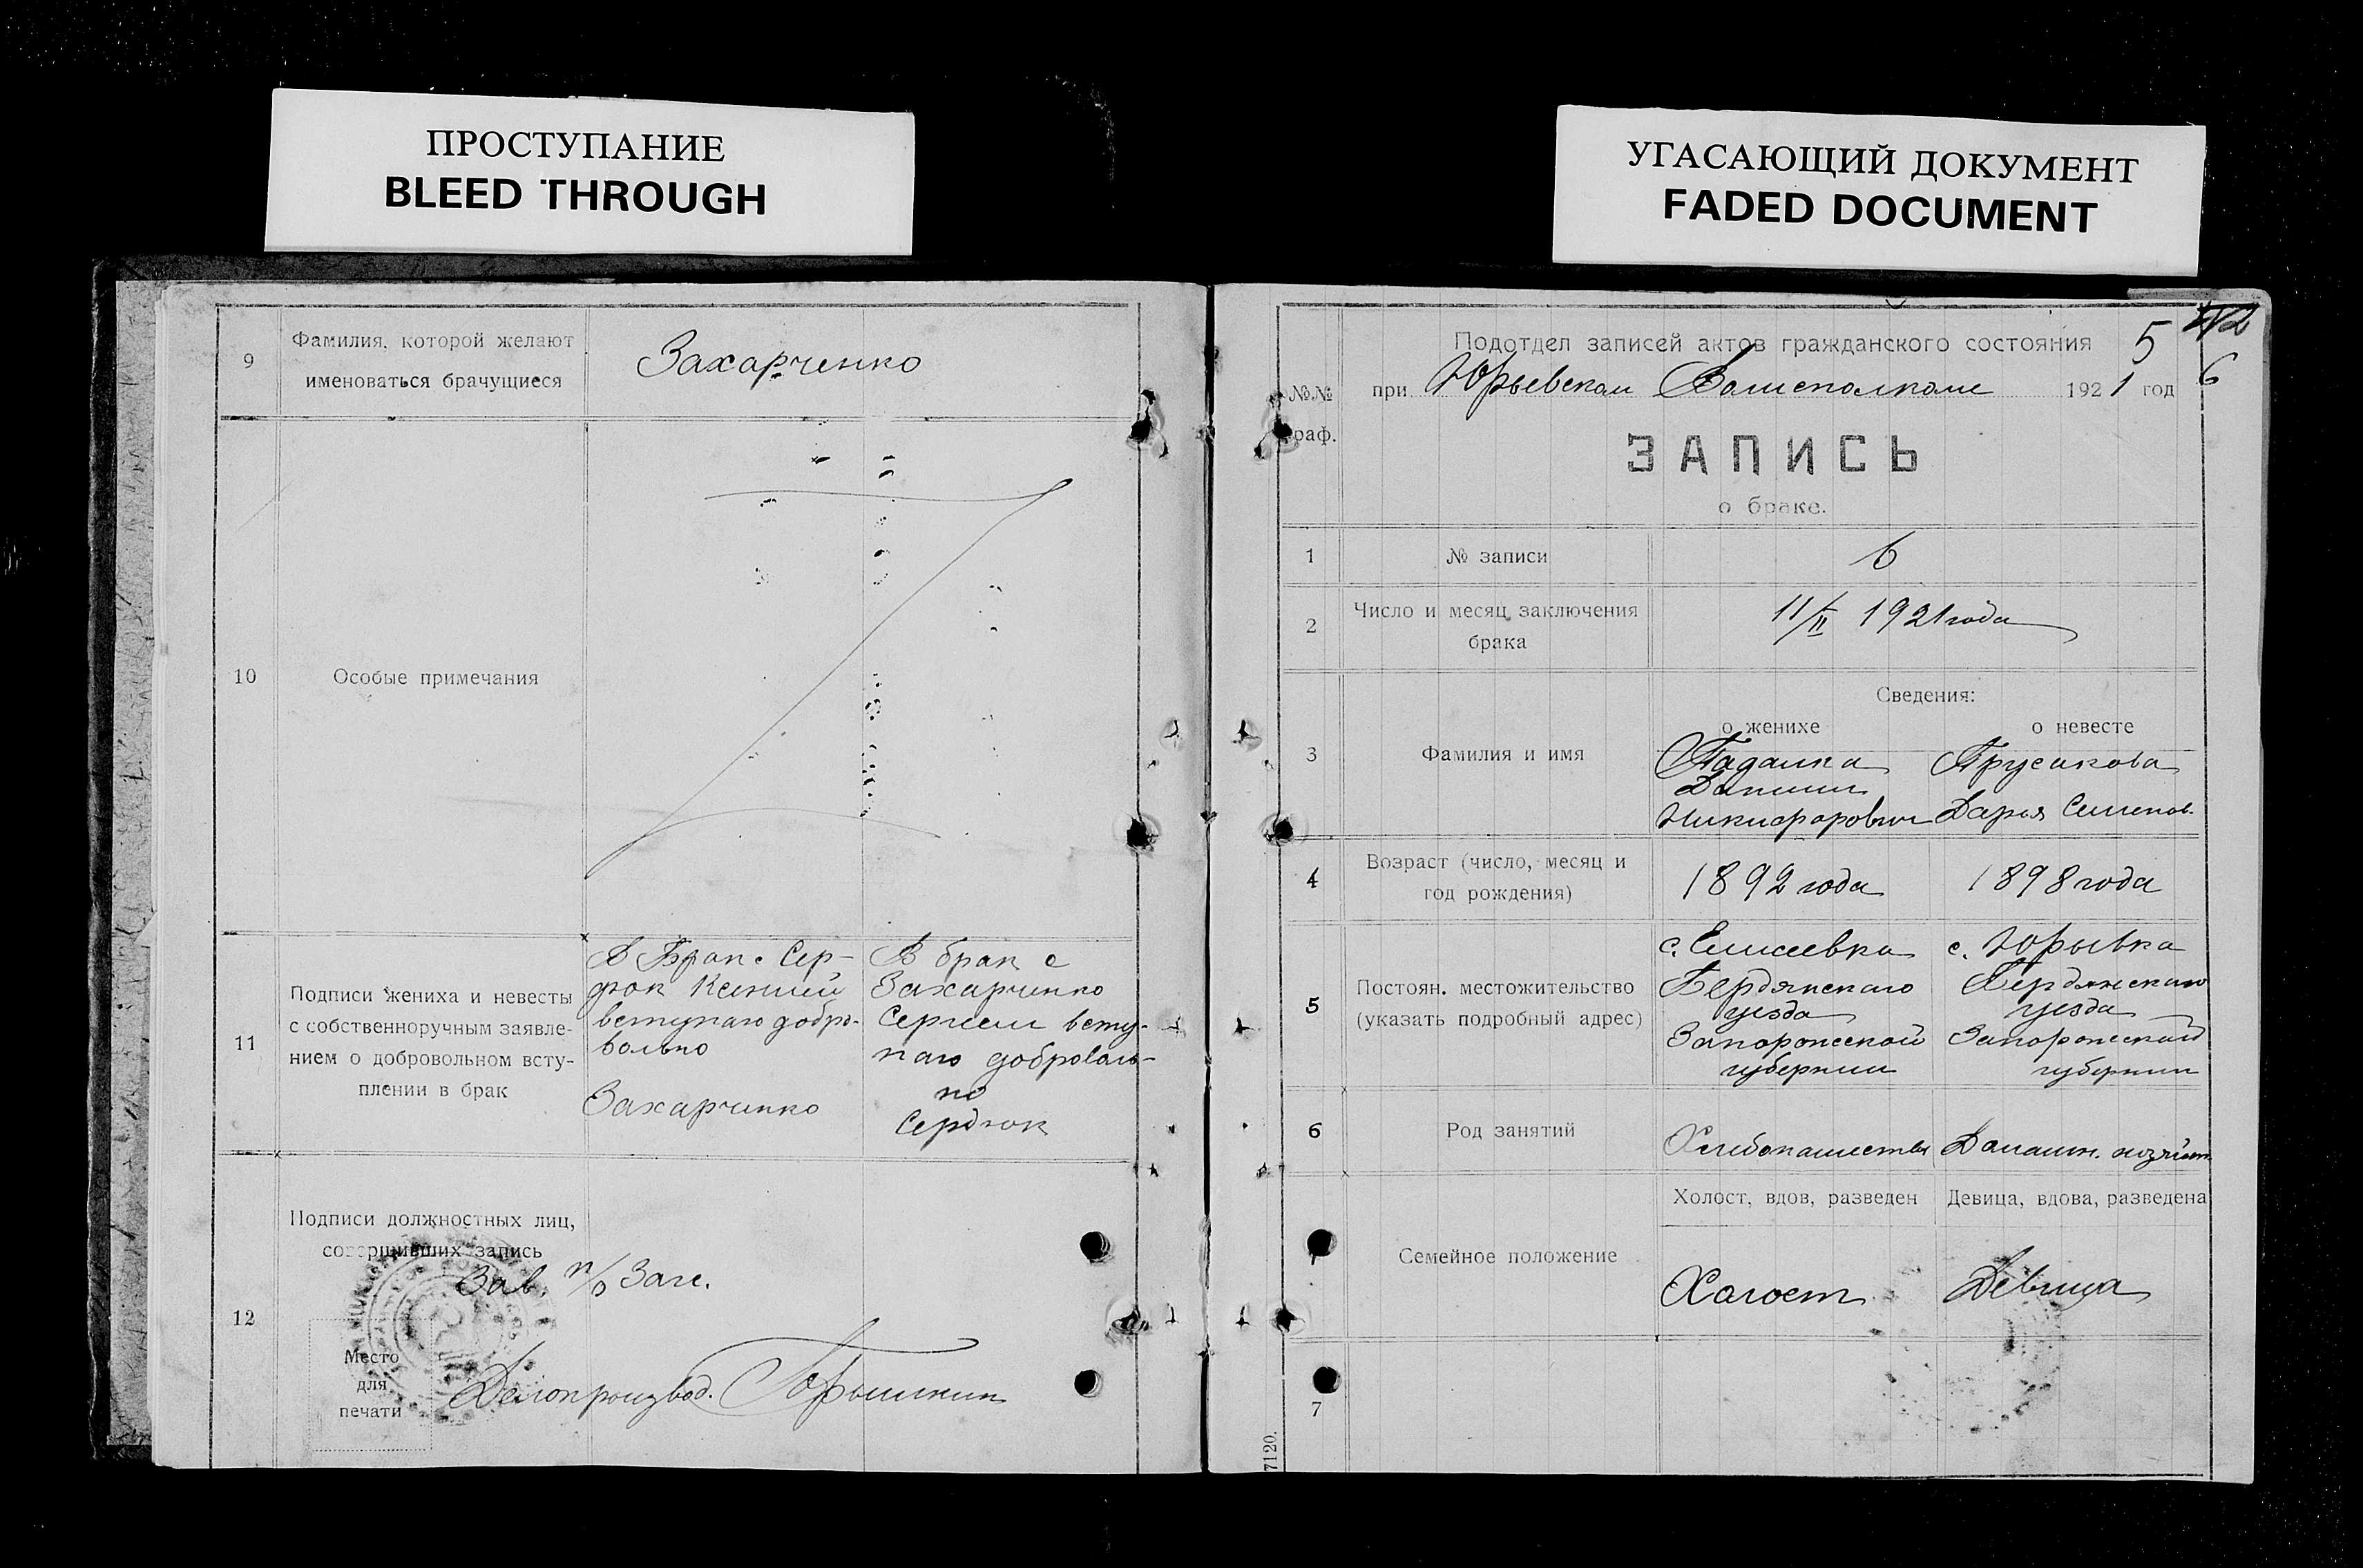 ПРОСТУПАНИЕ
BLEED THROUGH
УГАСАЮЩИЙ ДОКУМЕНТ
FADED DOCUMENT
9
Фамилия, которой желают
именоваться брачущиеся
Захарченко
10
Особые примечания
11
Подписи жениха и невесты
с собственноручным заявле-
нием о добровольном всту-
плении в брак
В Брак с Сер-
дюк Ксенией
вступаю добро-
вольно
Захарченко
В брак с
Захарченко
Сергеем всту-
паю доброволь-
но
Сердюк
12
Подписи должностных лиц,
совершивших запись
Зав. п/о Загс.
Место
для
печати
Делопроизвод.
5
6
№№
граф.
Подотдел записей актов гражданского состояния
при Юрьевском Волисполкоме 1921 год
ЗАПИСЬ
о браке.
1
№ записи
6
2
Число и месяц заключения
брака
11/II 1921 года
3
Фамилия и имя
Сведения:
о женихе
о невесте
Падалка
Даниил
Никифорович
Прусакова
Дарья Семенов.
4
Возраст (число, месяц и
год рождения)
1892 года
1898 года
5
Постоян. местожительство
(указать подробный адрес)
с. Елисеевка
Бердянского
уезда
Запорожской
губернии
с. Юрьевка
Бердянского
уезда
Запорожской
губернии
6
Род занятий
Хлебопашество
Домашн. хозяйст.
Семейное положение
Холост, вдов, разведен
Девица, вдова, разведена
Холост
Девица
7
7120.